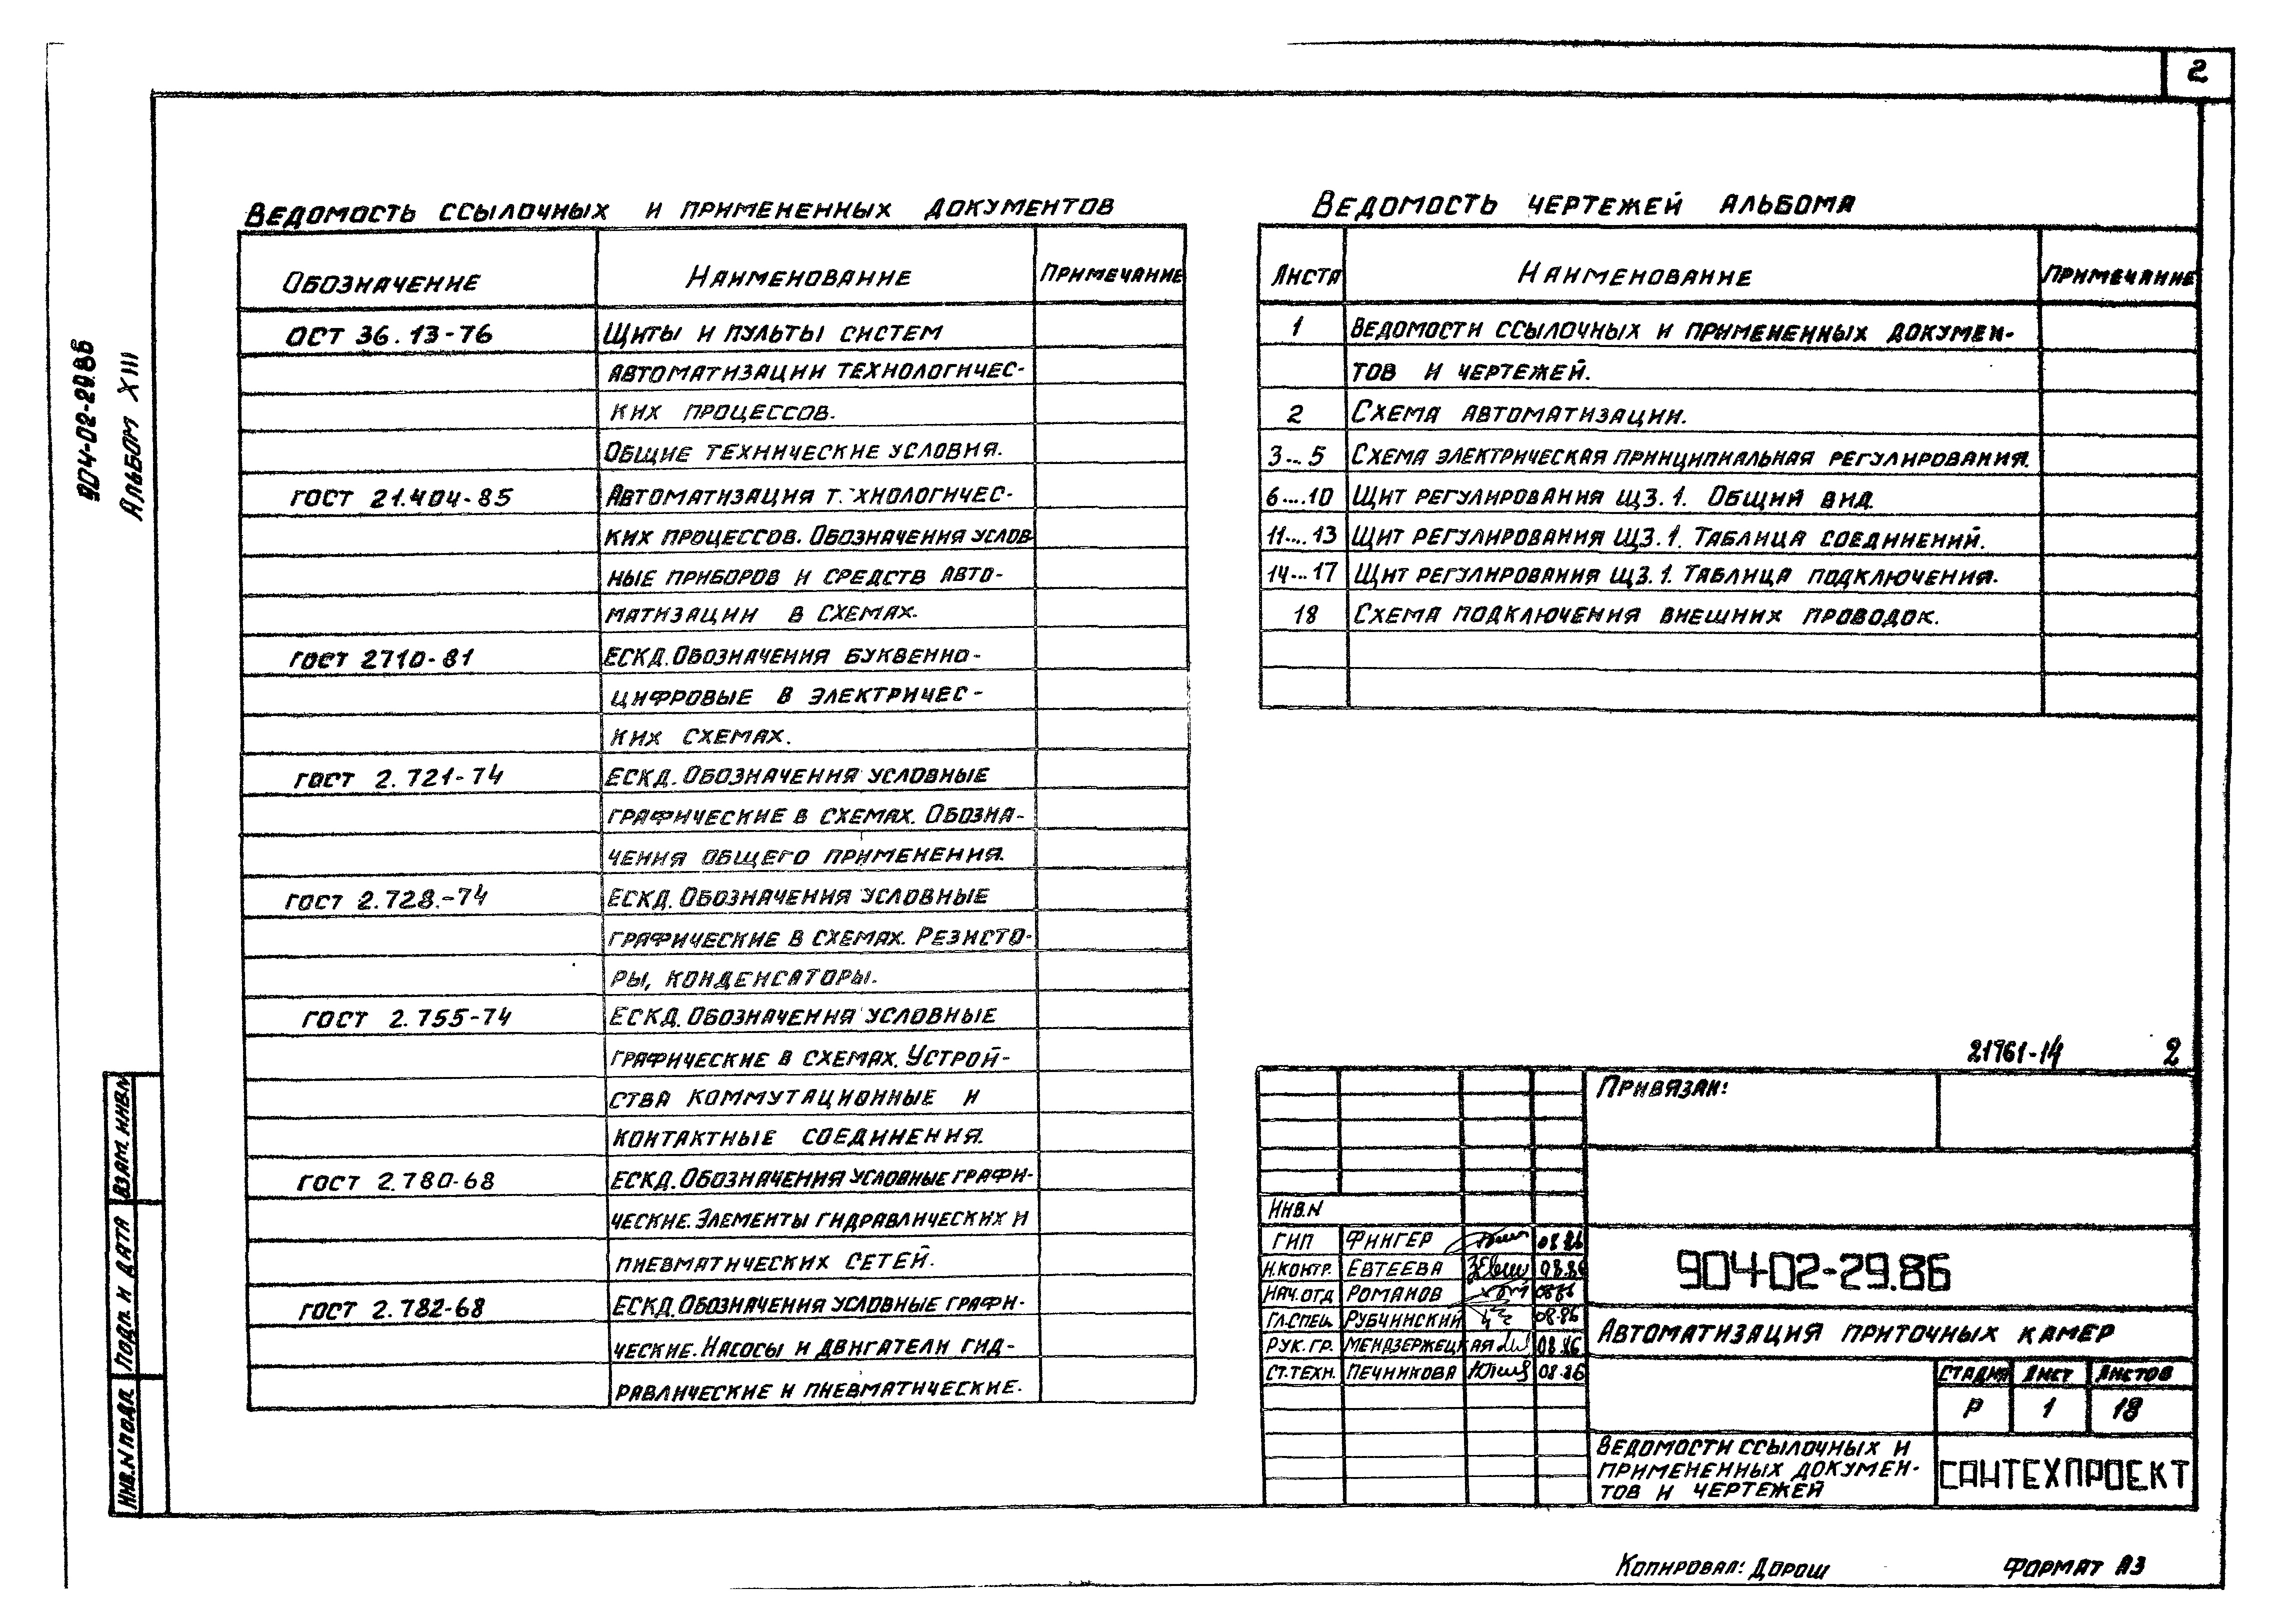 2
904-02-29.86
Альбом XIII
Ведомость ссылочных и примененных документов
Обозначение Наименование Примечание
ОСТ 36.13-76 Щиты и пульты систем
автоматизации технологичес-
ких процессов.
Общие технические условия.
ГОСТ 21.404-85 Автоматизация т. хнологичес-
ких процессов. Обозначения услов
ные приборов и средств авто-
матизации в схемах.
ГОСТ 2710-81 ЕСКД. Обозначения буквенно-
цифровые в электричес-
ких схемах.
ГОСТ 2.721-74 ЕСКД. Обозначения условные
графические в схемах. Обозна-
чения общего применения.
ГОСТ 2.728.-74 ЕСКД. Обозначения условные
графические в схемах. Резисто-
ры, конденсаторы.
ГОСТ 2.755-74 ЕСКД. Обозначения условные
графические в схемах. Устрой-
ства коммутационные и
контактные соединения.
ГОСТ 2.780-68 ЕСКД. Обозначения условные графи-
ческие. Элементы гидравлических и
пневматических сетей.
ГОСТ 2.782-68 ЕСКД. Обозначения условные графи-
ческие. Насосы и двигатели гид-
равлические и пневматические.
Ведомость чертежей альбома
Листа Наименование Примечание
1 Ведомости ссылочных и примененных докумен-
тов и чертежей.
2 Схема автоматизации.
3...5 Схема электрическая принципиальная регулирования.
6....10 Щит регулирования ЩЗ.1. Общий вид.
11....13 Щит регулирования ЩЗ.1. Таблица соединений.
14...17 Щит регулирования ЩЗ.1. Таблица подключения.
18 Схема подключения внешних проводок.
21961-14 2
Привязан:
Инв.N
ГИП Фингер 08.86
Н.контр. Евтеева 08.86
Нач.отд Романов 08.86
Гл.спец. Рубчинский 08.86
Рук.гр. Мендзержецкая 08.86
Ст.техн. Печникова 08.86
904-02-29.86
Автоматизация приточных камер
Стадия Лист Листов
Р 1 18
Ведомости ссылочных и
примененных докумен-
тов и чертежей
САНТЕХПРОЕКТ
Взам. инв.N
Подп. и дата
Инв.N подл.
Копировал: Дорош Формат А3